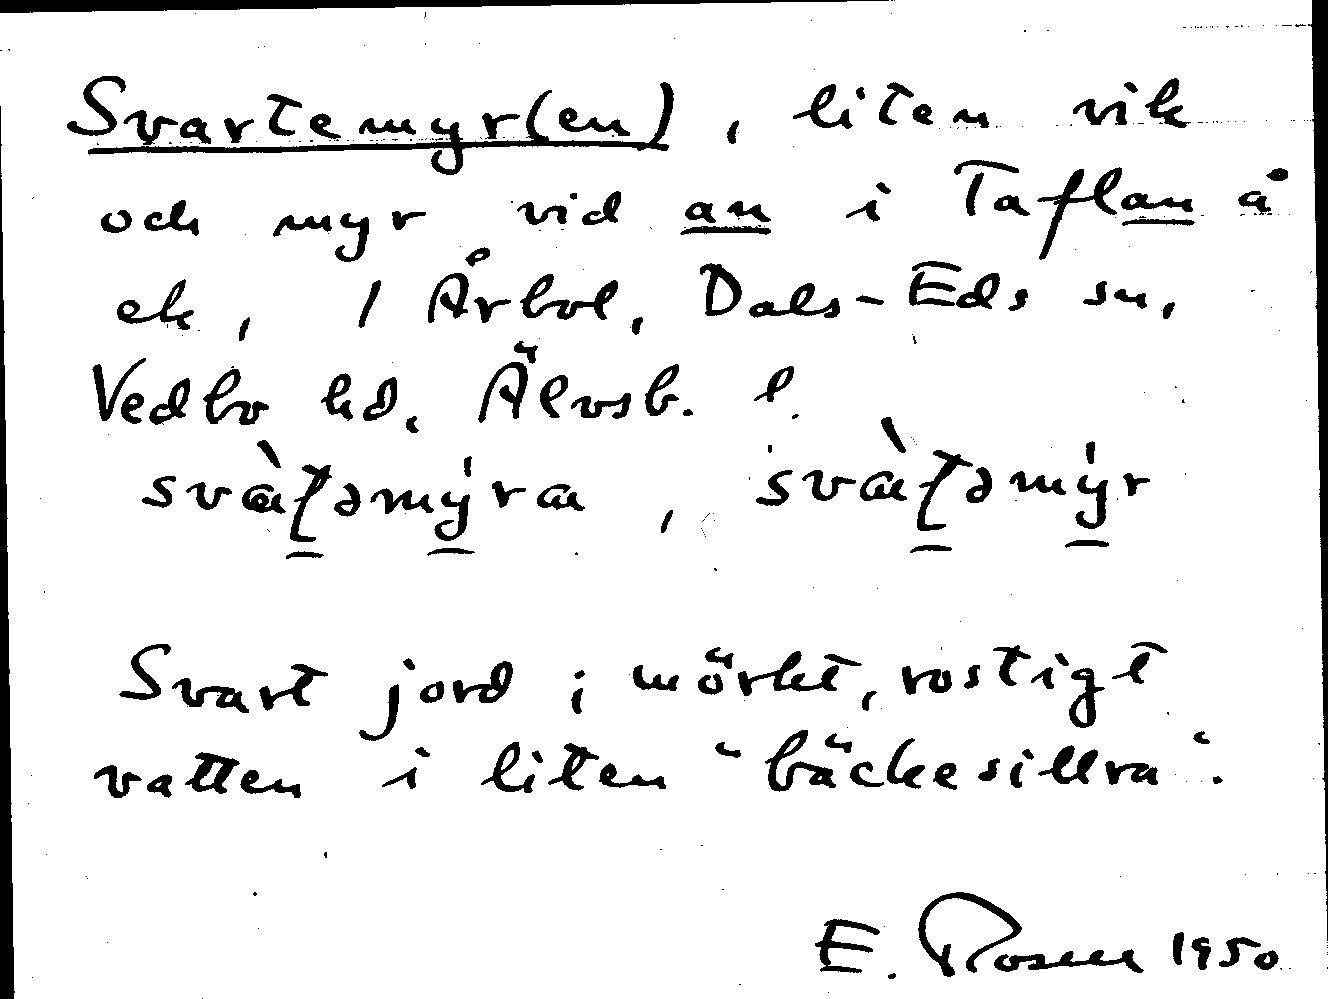 Svartemyr(en), liten vik
och myr vid an i Taflan å
ek, 1 Årbol, Dals-Eds sn,
Vedbo hd, Älvsb. l.
Svart jord i mörkt, rostigt
vatten i liten "bäckesillra".
E. Rosen 1950